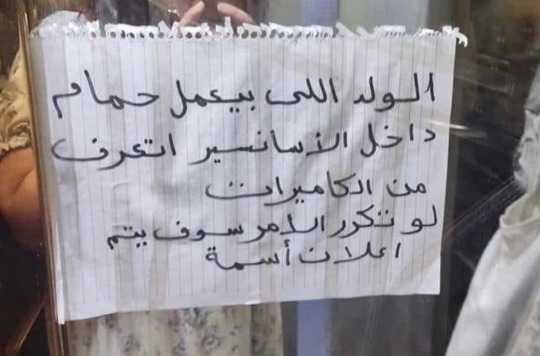 الولد اللى بيعمل حمام
داخل الأسانسير اتعرف
من الكاميرات
لو تكرر الامر سوف يتم
اعلان أسمة